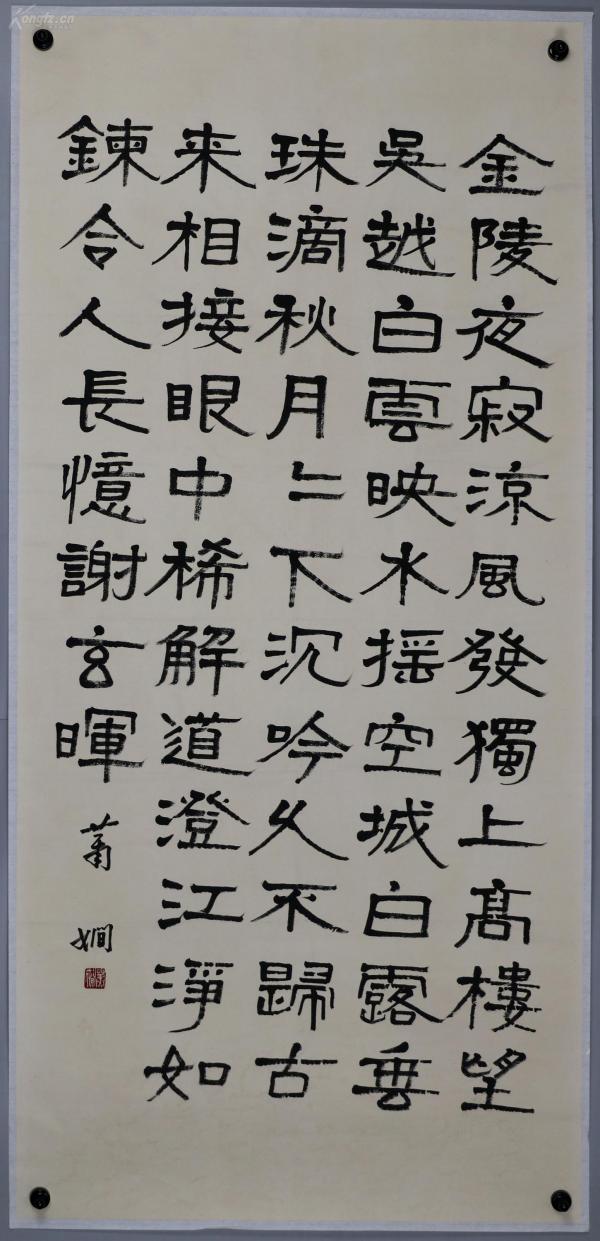 金陵夜寂涼風發獨上高樓望
吳越白雲映水揺空城白露垂
珠滴秋月〻下沉吟久不歸古
来相接眼中稀解道澄江淨如
鍊令人長憶謝玄暉
蕭嫻
Kongfz.cn